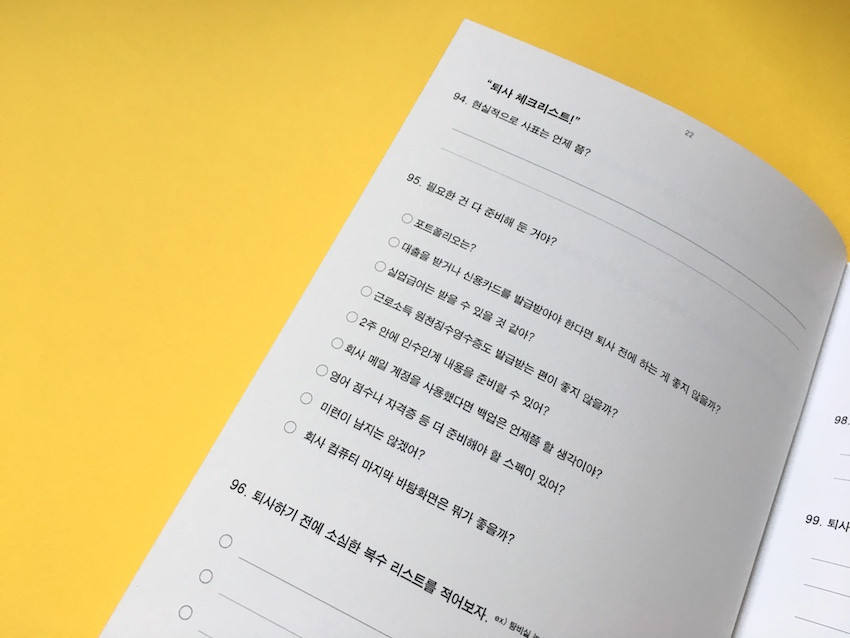 22
"퇴사 체크리스트!"
94. 현실적으로 사표는 언제 쯤?
95. 필요한 건 다 준비해 둔 거야?
포트폴리오는?
대출을 받거나 신용카드를 발급받아야 한다면 퇴사 전에 하는 게 좋지 않을까?
실업급여는 받을 수 있을 것 같아?
근로소득 원천징수영수증도 발급받는 편이 좋지 않을까?
2주 안에 인수인계 내용을 준비할 수 있어?
회사 메일 계정을 사용했다면 백업은 언제쯤 할 생각이야?
영어 점수나 자격증 등 더 준비해야 할 스펙이 있어?
미련이 남지는 않겠어?
회사 컴퓨터 마지막 바탕화면은 뭐가 좋을까?
96. 퇴사하기 전에 소심한 복수 리스트를 적어보자. ex) 탕비실
98.
99. 퇴사